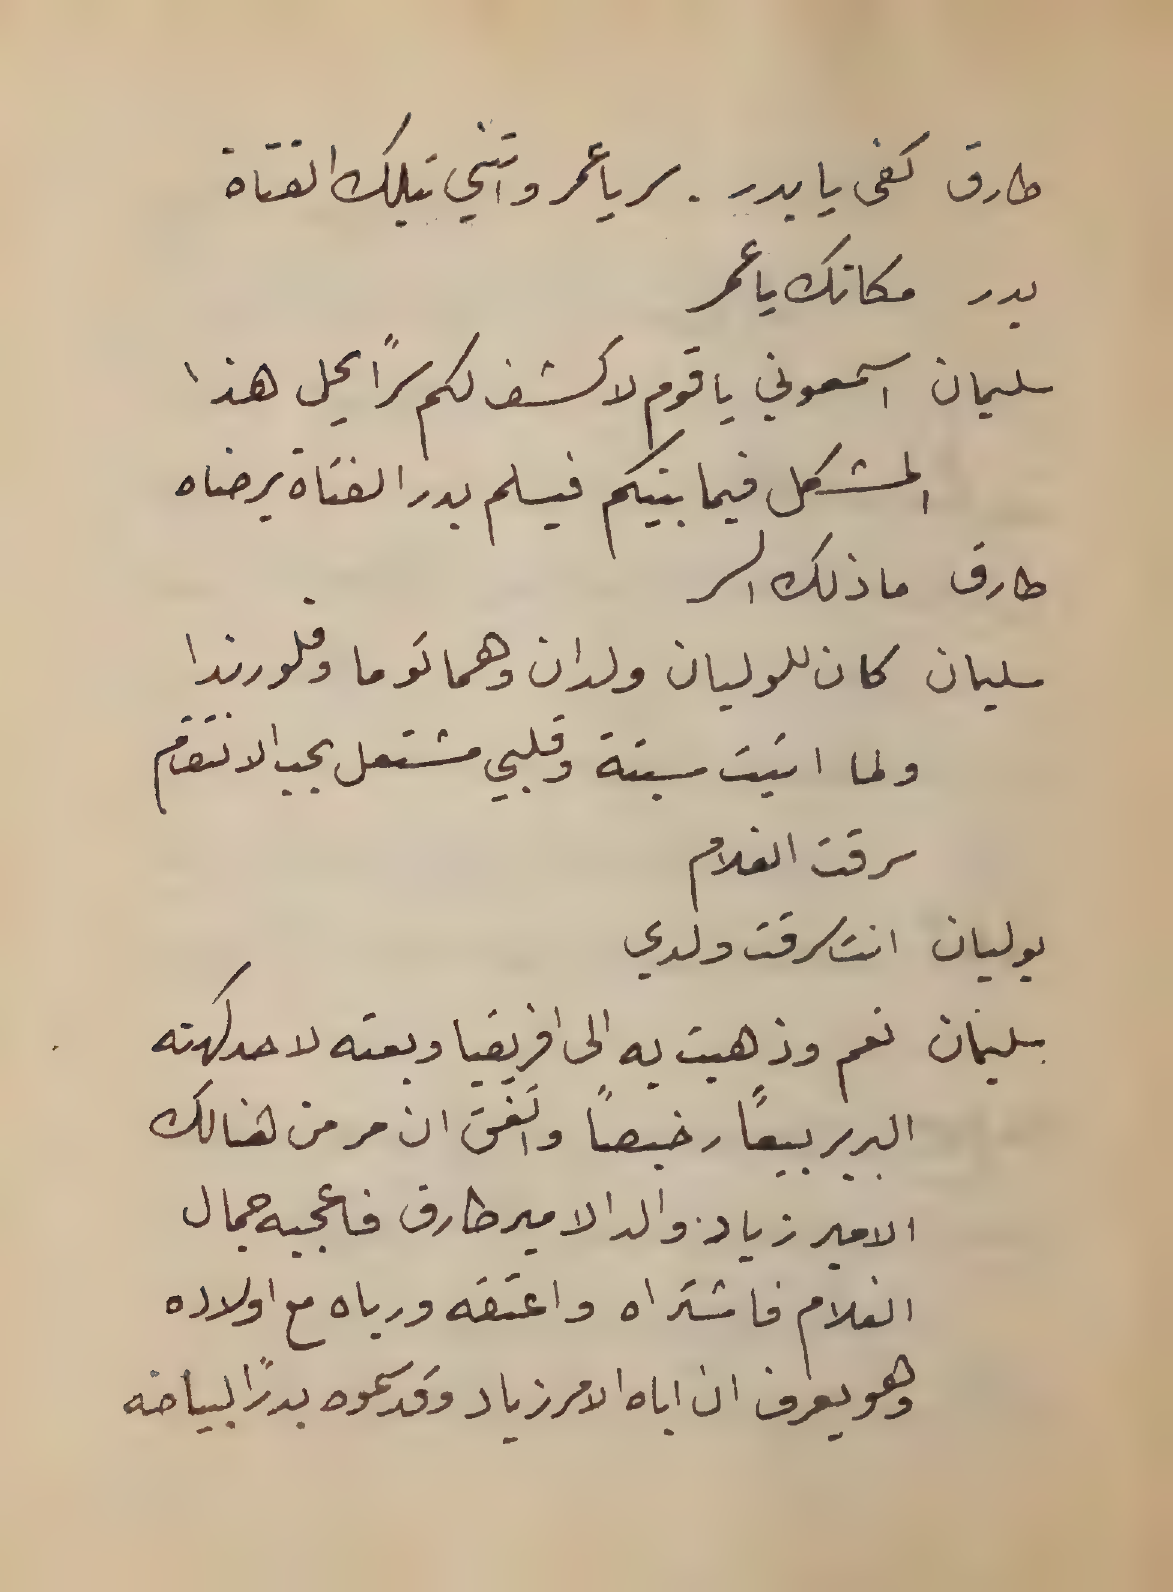 طارق كفى يا بدر . سر يا عمر وائتني بتلك الفتاة
بدر مكانك يا عمر
سليمان اسمعوني يا قوم لاكشف لكم سرًا يحل هذا
المشكل فيما بينكم فيسلم بدر الفتاة برضاه
طارق ما ذلك السر
سليمان كان لليوليان ولدان وهما توما وفلورندا
ولما اتيت سبتة وقلبي مشتعل بحب الانتقام
سرقت الغلام
يوليان انت سرقت ولدي
سليمان نعم وذهبت به الى افريقيا وبعته لاحد كهنة
البربر بيعًا رخيصًا واتفق ان مر من هنالك
الامير زياد والد الامير طارق فاعجبه جمال
الغلام فاشتراه واعتقه ورباه مع اولاده
وهو يعرف ان اباه الامير زياد وقد سموه بدرًا لبياضه